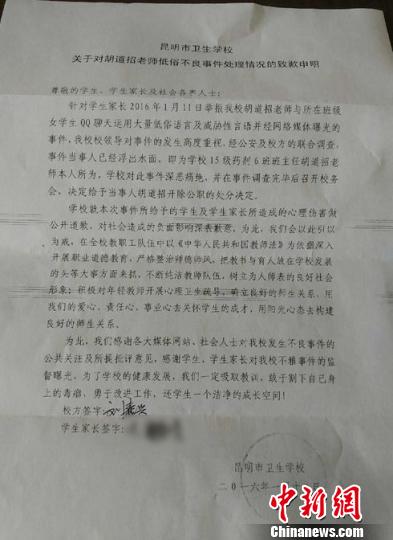 昆明市卫生学校
关于对胡道招老师低俗不良事件处理情况的致歉申明
尊敬的学生、学生家长及社会各界人士:
针对学生家长2016年1月11日举报我校胡道招老师与所在班级
女学生QQ聊天运用大量低俗语言及威胁性言语并经网络媒体曝光的
事件,我校校领导对事件的发生高度重视。经公安及校方的联合调查,
事件当事人已经浮出水面、即为学校15级药剂6班班主任胡道招老
师本人所为,学校对此事件深恶痛绝,并在事件调查完毕后召开校务
会,决定给予当事人胡道招开除公职的处分决定。
学校就本次事件所给予的学生及学生家长所造成的心理伤害做
公开道歉,对社会造成的负面影响深表歉意。为此,我们会以此引以
为戒,在全校教职工队伍中以《中华人民共和国教师法》为依据深入
开展职业道德教育,严格整治师德师风,把教书与育人放在学校发展
的头等大事方面来抓,不断纯洁教师队伍,树立为人师表的良好社会
形象;积极对年轻教师开展心理卫生疏导,确立良好的师生关系,用
我们的爱心、责任心、事业心去关怀学生的成才,用阳光心态去构建
良好的师生关系。
为此,我们感谢各大媒体网站、社会人士对我校发生不良事件的
公共关注及所提批评意见,感谢学生、学生家长对我校不雅事件的监
督曝光,为了学校的健康发展,我们一定吸取教训,敢于割下自己身
上的毒瘤,勇于改进工作,还学生一个洁净的成长空间!
校方签字:
学生家长签字:
昆明市卫生学校
二〇一六年一月
中新网
www.chinanews.com